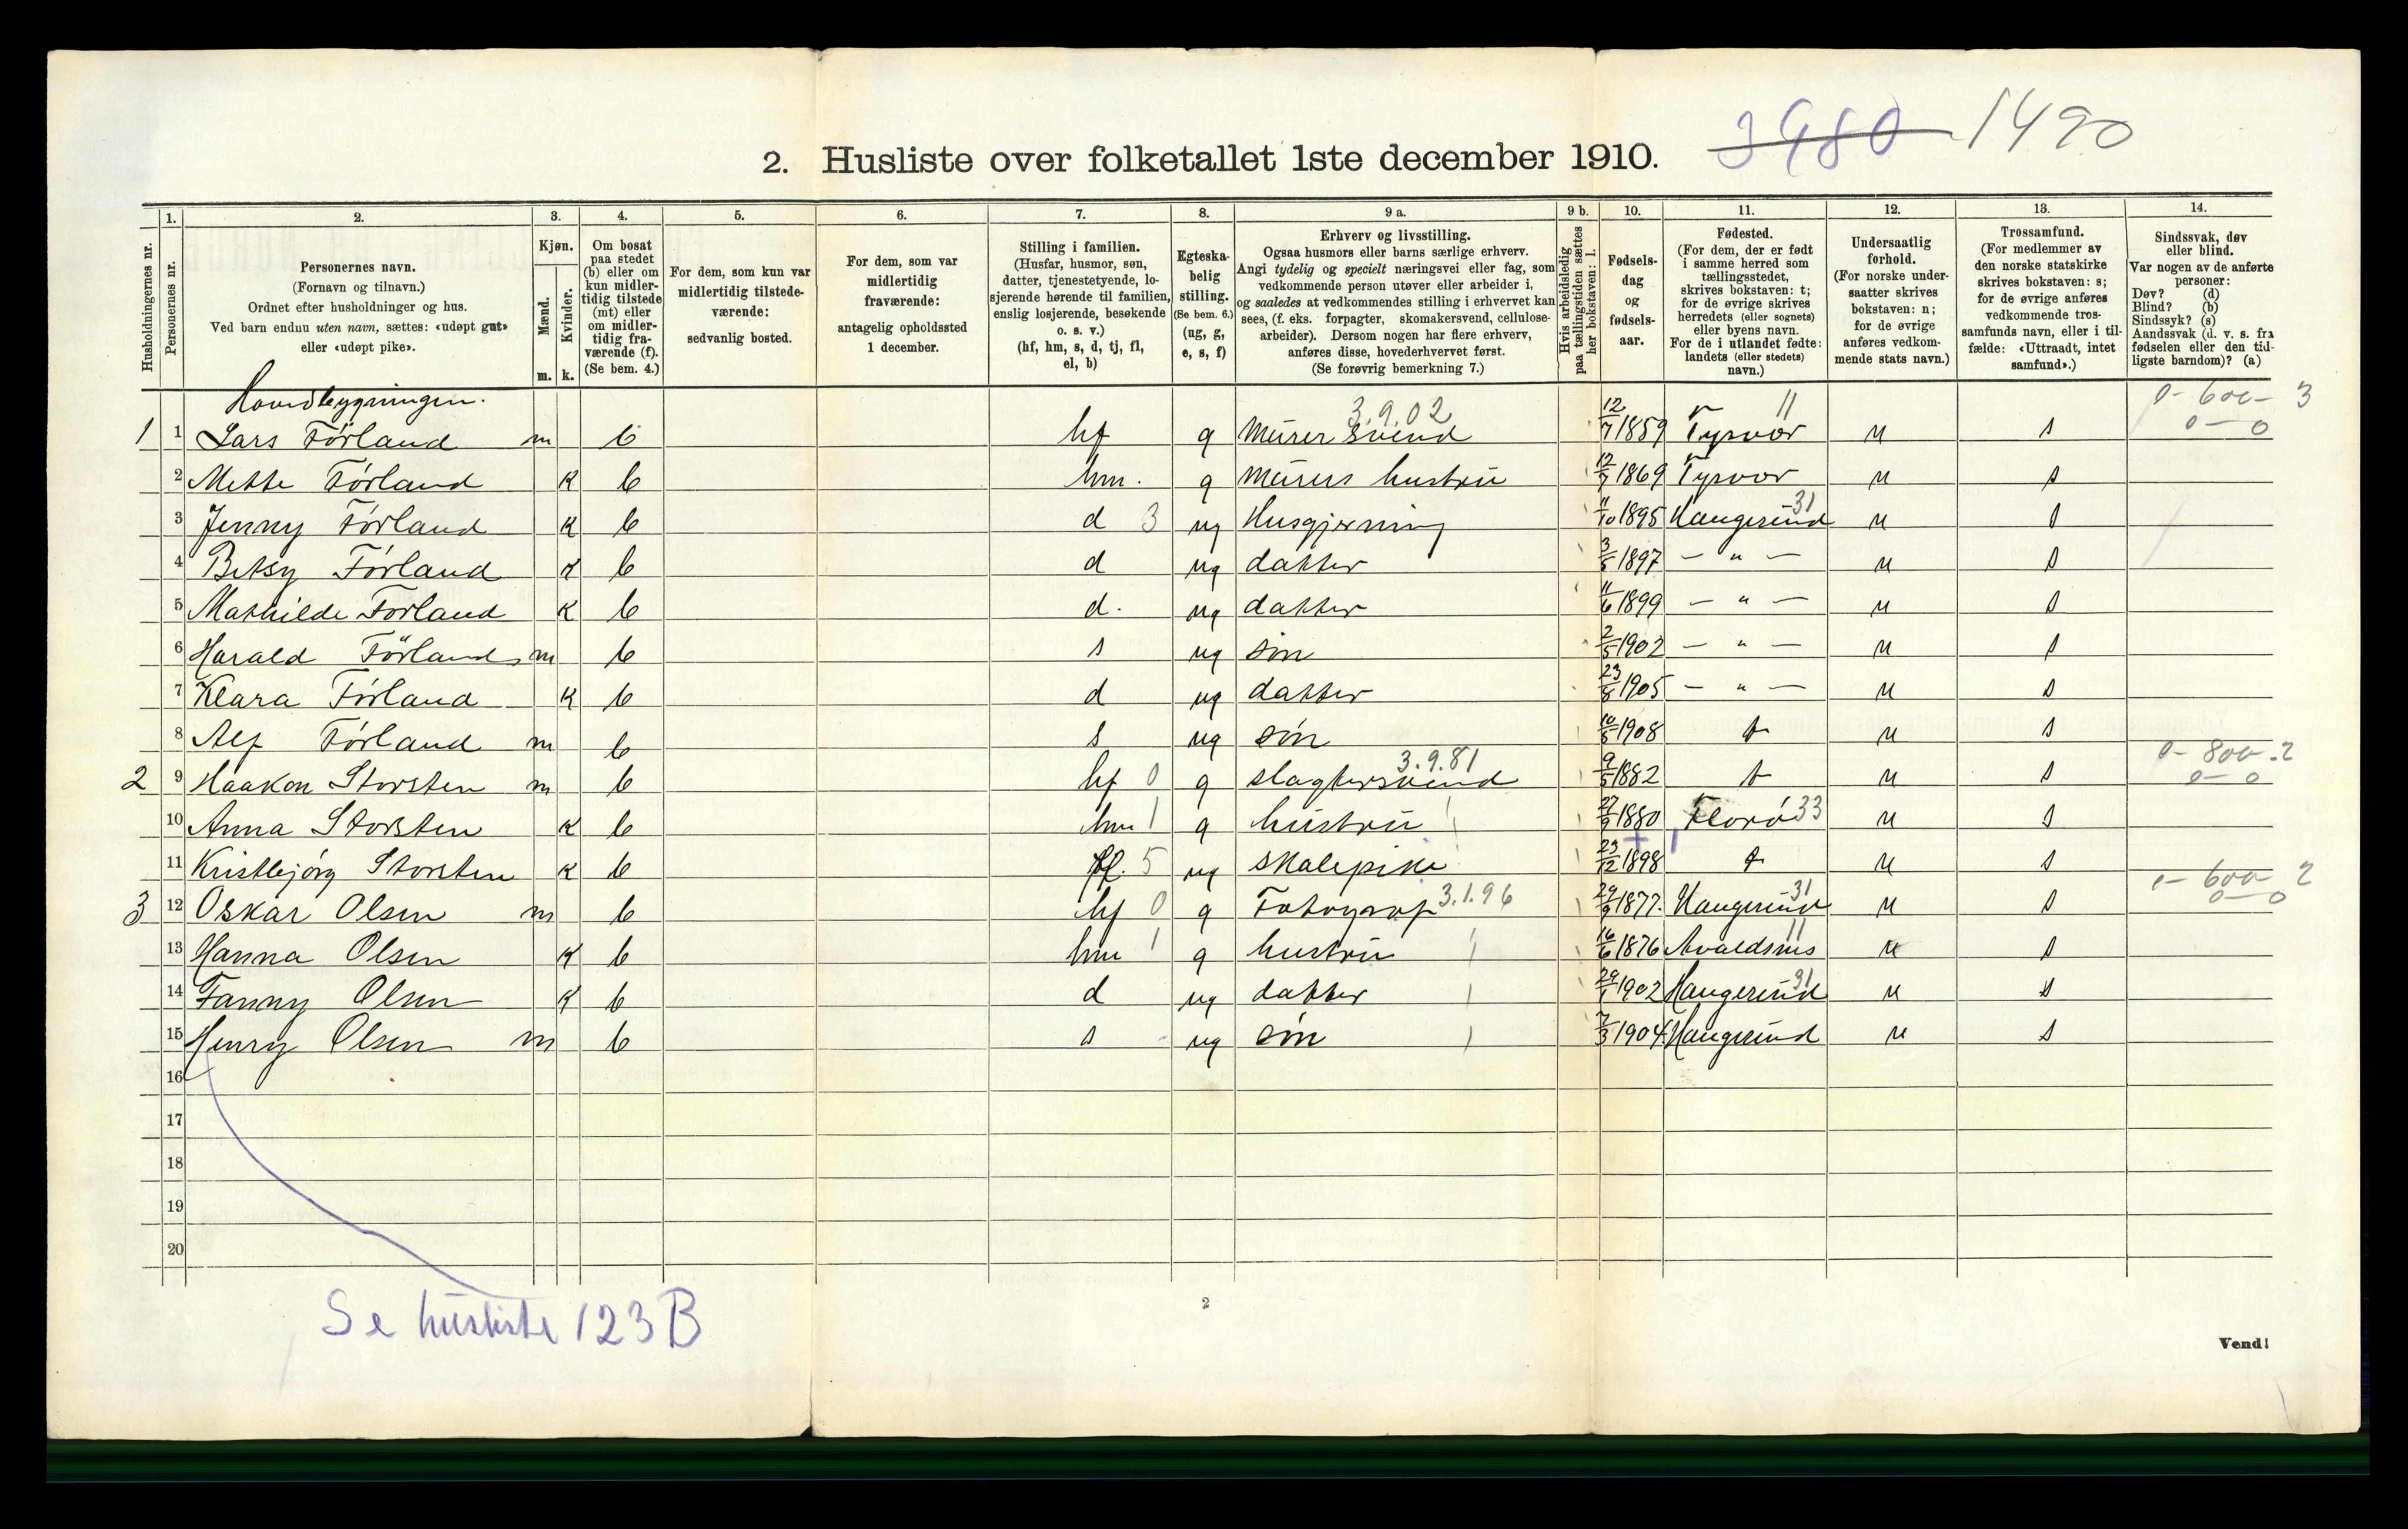 3980 1490
2. Husliste over folketallet 1ste december 1910.
Husholdningernes nr.
1.
Personernes nr.
2.
Personernes navn.
(Fornavn og tilnavn.)
Ordnet efter husholdninger og hus.
Ved barn endnu uten navn, sættes: «udøpt gut»
eller «udøpt pike».
3.
Kjøn.
Mænd.
Kvinder.
m. k.
4.
Om bosat
paa stedet
(b) eller om
kun midler-
tidig tilstede
(mt) eller
om midler-
tidig fra-
værende (f).
(Se bem. 4.)
5.
For dem, som kun var
midlertidig tilstede-
værende:
sedvanlig bosted.
6.
For dem, som var
midlertidig
fraværende:
antagelig opholdssted
1 december.
7.
Stilling i familien.
(Husfar, husmor, søn,
datter, tjenestetyende, lo-
sjerende hørende til familien,
enslig losjerende, besøkende
o. s. v.)
(hf, hm, s, d, tj, fl,
el, b)
8.
Egteska-
belig
stilling.
(Se bem. 6.)
(ug, g,
e, s, f)
9 a.
Erhverv og livsstilling.
Ogsaa husmors eller barns særlige erhverv.
Angi tydelig og specielt næringsvei eller fag, som
vedkommende person utøver eller arbeider i,
og saaledes at vedkommendes stilling i erhvervet kan
sees, (f. eks. forpagter, skomakersvend, cellulose-
arbeider). Dersom nogen har flere erhverv,
anføres disse, hovederhvervet først.
(Se forøvrig bemerkning 7.)
9 b.
Hvis arbeidsledig
paa tællingstiden sættes
her bokstaven: l.
10.
Fødsels-
dag
og
fødsels-
aar.
11.
Fødested.
(For dem, der er født
i samme herred som
tællingsstedet,
skrives bokstaven: t;
for de øvrige skrives
herredets (eller sognets)
eller byens navn.
For de i utlandet fødte:
landets (eller stedets)
navn.)
12.
Undersaatlig
forhold.
(For norske under-
saatter skrives
bokstaven: n;
for de øvrige
anføres vedkom-
mende stats navn.)
13.
Trossamfund.
(For medlemmer av
den norske statskirke
skrives bokstaven: s;
for de øvrige anføres
vedkommende tros-
samfunds navn, eller i til-
fælde: «Uttraadt, intet
samfund».)
14.
Sindssvak, døv
eller blind.
Var nogen av de anførte
personer:
Døv? (d)
Blind? (b)
Sindssyk? (s)
Aandssvak (d. v. s. fra
fødselen eller den tid-
ligste barndom)? (a)
Hovedbygningen. 3.9.02 11 0-600- 3
1 1 Lars Førland m b hf g Murer svend 12/7 1859 Tysvær n s 0-0
2 Mette Førland k b hm. g Murers hustru 12/7 1869 Tysvær n s
3 Jenny Førland k b d 3 ug Husgjerning 11/10 1895 Haugesund 31 n s
4 Betsy Førland k b d ug datter 3/5 1897 - " - n s
5 Mathilde Førland k b d. ug datter 11/6 1899 - " - n s
6 Harald Førland m b s ug søn 2/5 1902 - " - n s
7 Klara Førland k b d ug datter 23/8 1905 - " - n s
8 Alf Førland m b s ug søn 10/5 1908 t n s
3.9.81 0-800-2
2 9 Haakon Storsten m b hf 0 g slagtersvend 9/5 1882 t n s 0-0
10 Anna Storsten k b hm 1 g hustru 27/9 1880 Florø 33 n s
11 Kristbjörg Storsten k b fl. 5 ug skolepike 23/12 1898 t n s
0-600 2
3 12 Oskar Olsen m b hf 0 g Fotograf 3.1.96 29/9 1877. Haugesund 31 n s 0-0
13 Hanna Olsen k b hm 1 g hustru 16/6 1876 Avaldsnes 11 n s
14 Fanny Olsen k b d ug datter 29/1 1902 Haugesund 31 n s
15 Henry Olsen m b s ug søn 7/3 1904. Haugesund n s
16
17
18
19
20
Se husliste 123 B
2
Vend!